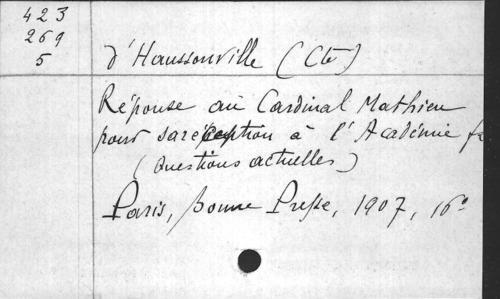 423
269
5
d'Haussonville (Cte)
Réponse au Cardinal Mathieu
pour sa réception à l'Académie f
(Questions actuelles)
Paris, bonne Presse, 1907, 16º